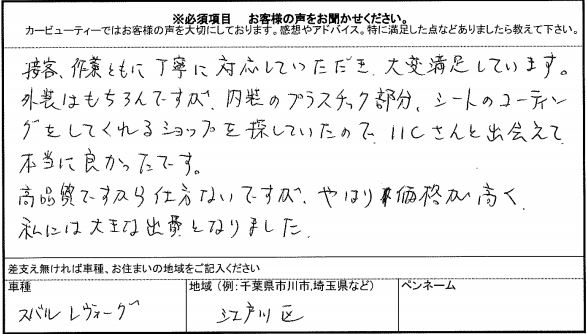 ※必須項目　お客様の声をお聞かせください。
カービューティーではお客様の声を大切にしております。感想やアドバイス。特に満足した点などありましたら教えて下さい。
接客、作業ともに丁寧に対応していただき、大変満足しています。
外装はもちろんですが、内装のプラスチック部分、シートのコーティン
グをしてくれるショップを探していたので、IICさんと出会えて
本当に良かったです。
高品質ですから仕方ないですが、やはり価格が高く、
私には大きな出費となりました。
差支え無ければ車種、お住まいの地域をご記入ください
車種　地域（例：千葉県市川市,埼玉県など）　ペンネーム
スバル レヴォーグ　江戸川区